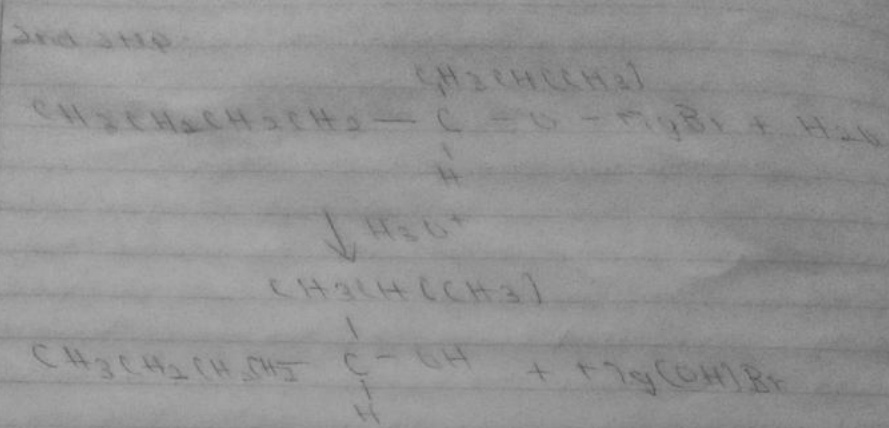 2nd step
CH3CH(CH3)
CH3CH2CH2CH2 — C — O - MgBr + H2O
H
↓ H3O+
CH3CH(CH3)
CH3CH2CH2CH2 — C - OH + Mg(OH)Br
H